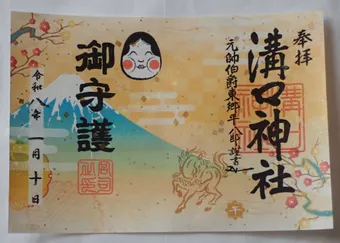 奉拝
溝口神社
元帥伯爵東郷平八郎謹書
御守護
令和八年一月十日
午